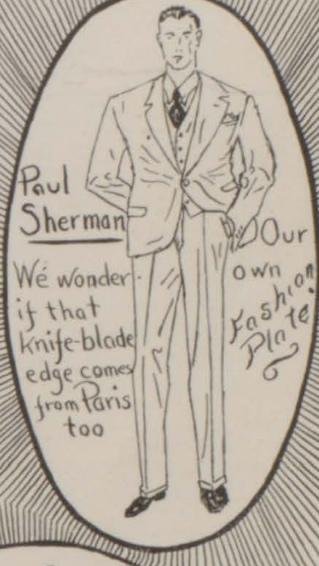 Paul
Sherman
We wonder
if that
knife-blade
edge comes
from Paris
too
Our
own
Fashion
Plate